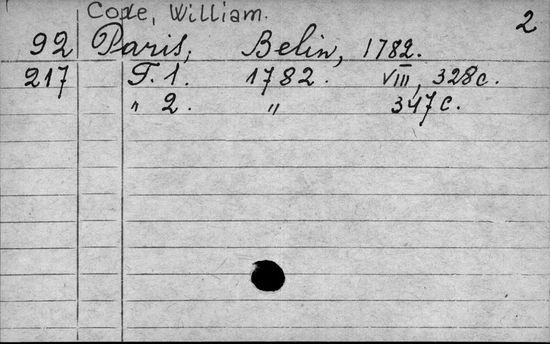 Coxe, William. 2
92 Paris, Belin, 1782.
217 T. 1. 1782. VIII, 328 c.
„ 2. „ 347 c.